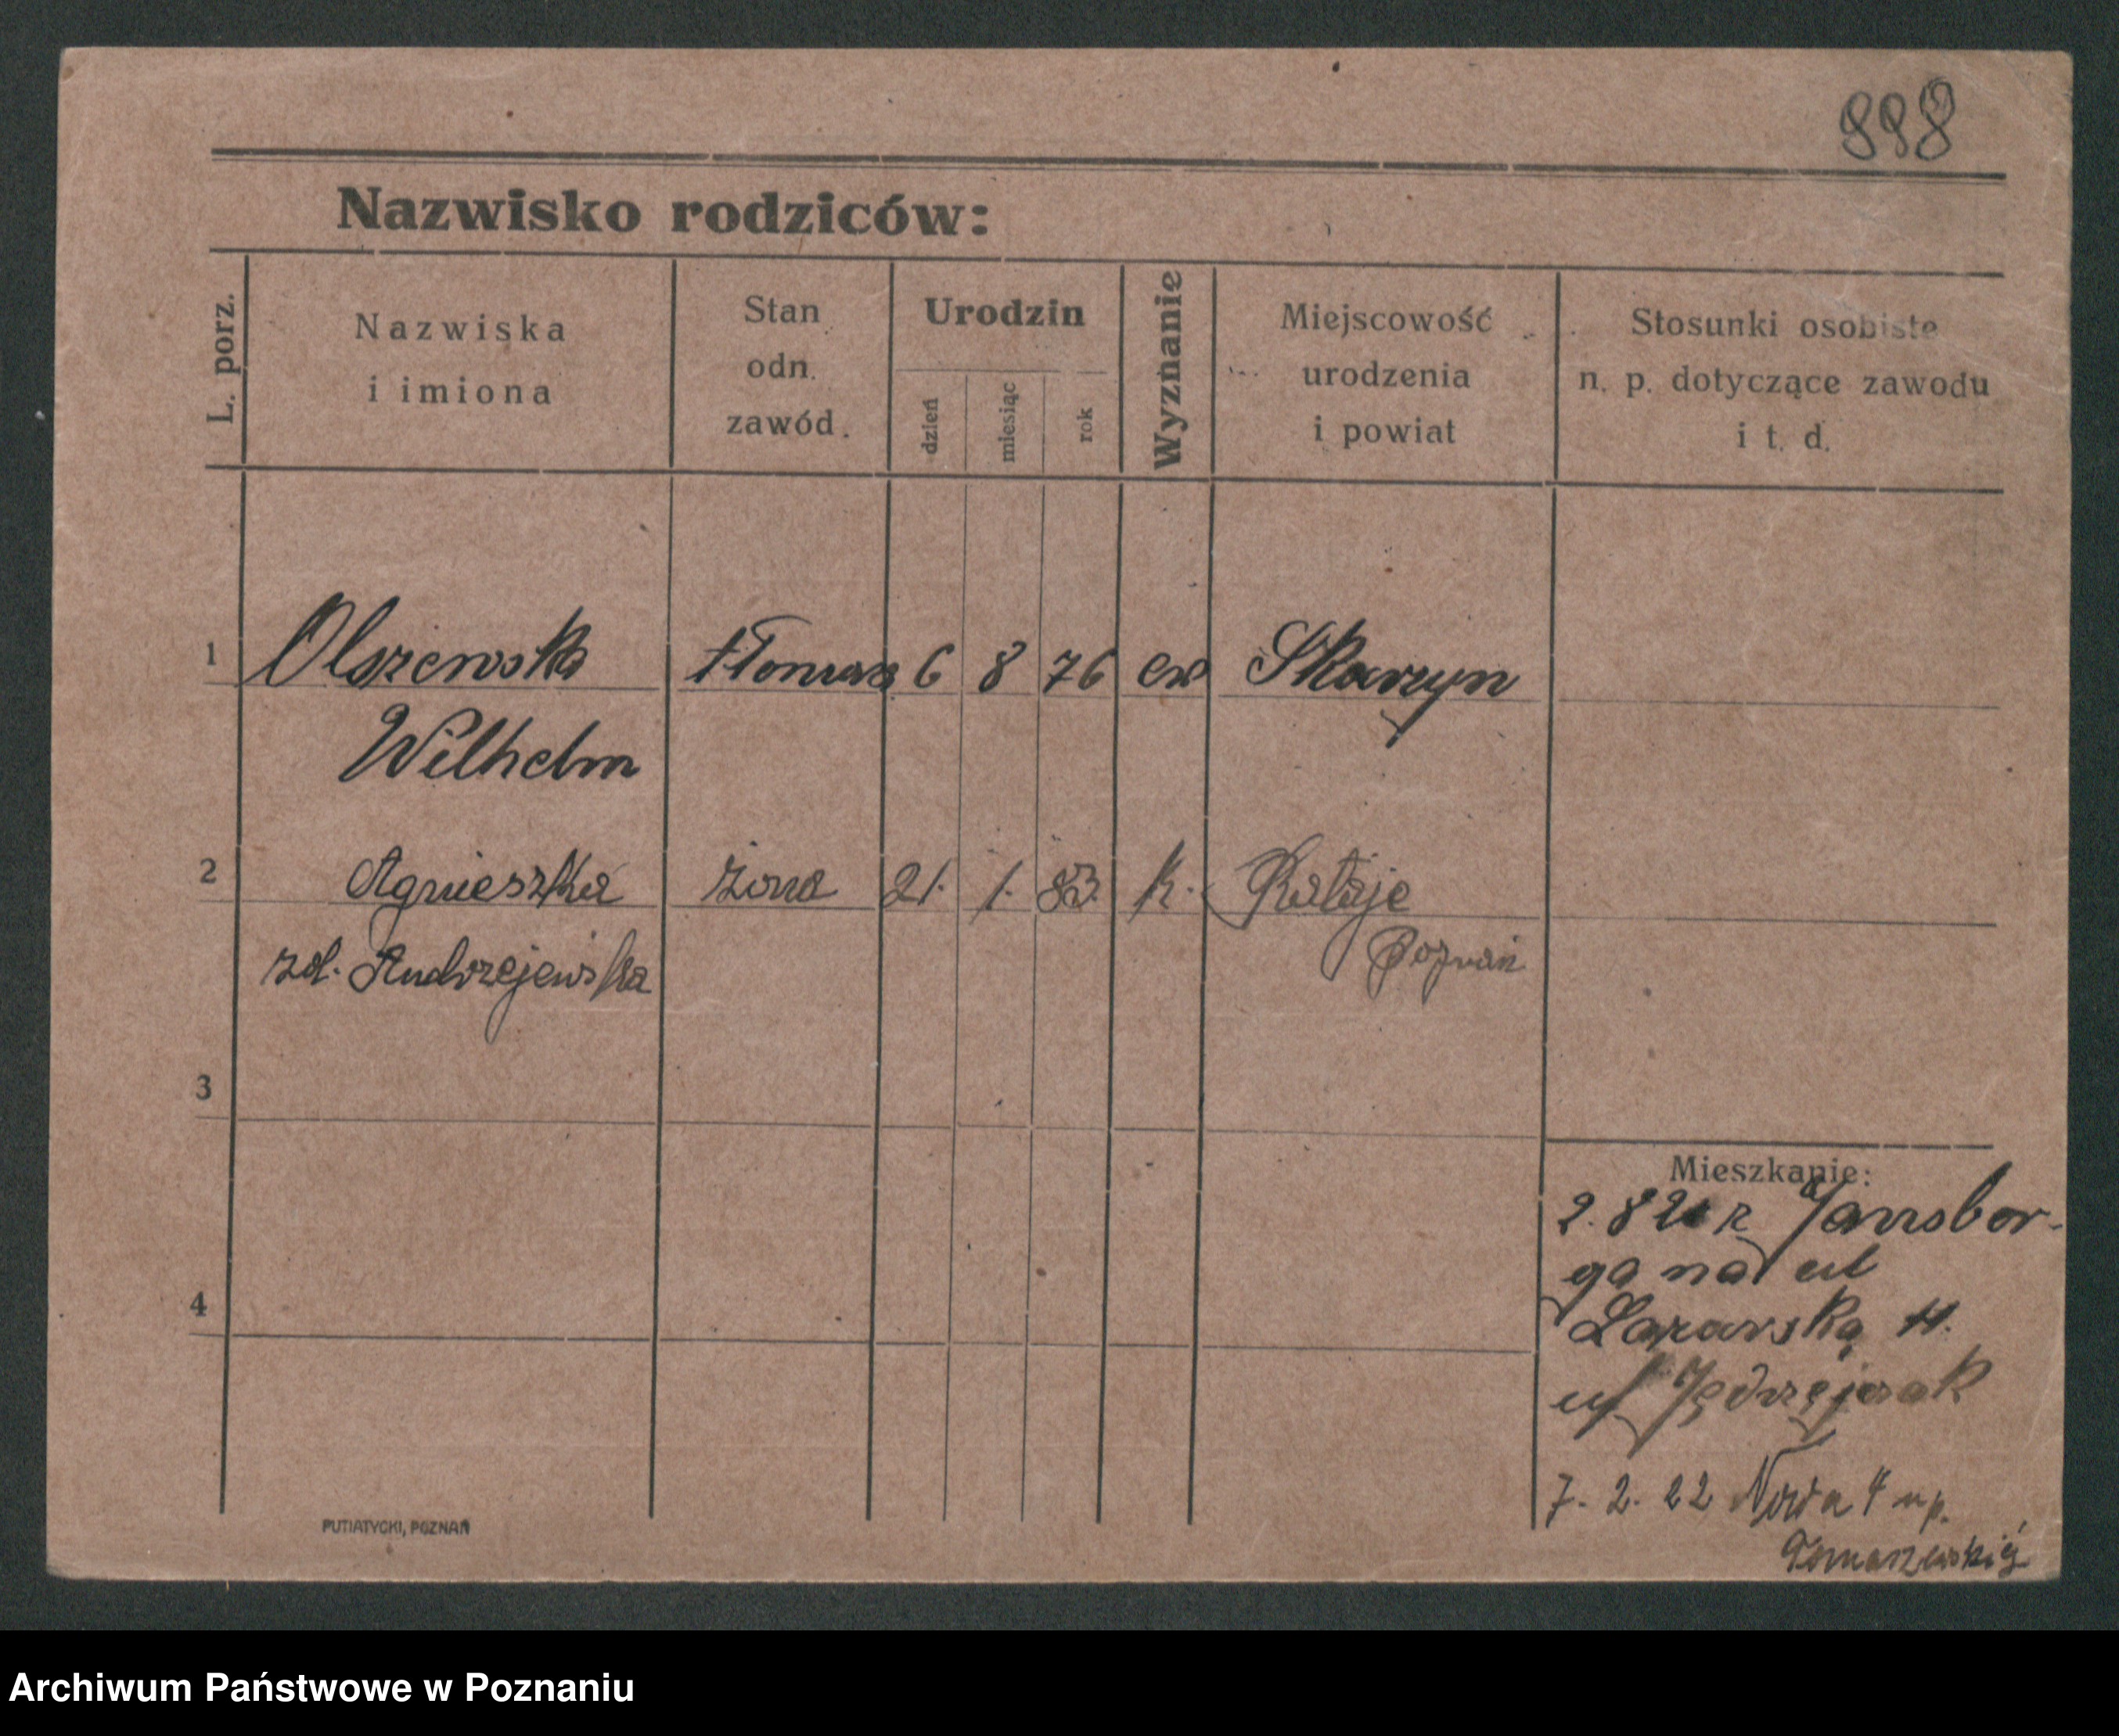 898
Nazwisko rodziców:
L. porz.
Nazwiska
i imiona
Stan
odn.
zawód.
Urodzin
dzień
miesiąc
rok
Wyznanie
Miejscowość
urodzenia
i powiat
Stosunki osobiste
n. p. dotyczące zawodu
i t. d.
1 Olszewska 6 8 76 ew Skarzyn
Wilhelm
2 Agnieszka żona 21. 1. 83. k. Rataje
Poznań
zd. Andrzejewska
3
Mieszkanie:
2. 8 21 r
ga na ul
4
Lazarską 11.
Jędrzejczak
7. 2. 22 Nowa 4 u p.
Tomaszewskiej
PUTIATYCKI, POZNAŃ
Archiwum Państwowe w Poznaniu